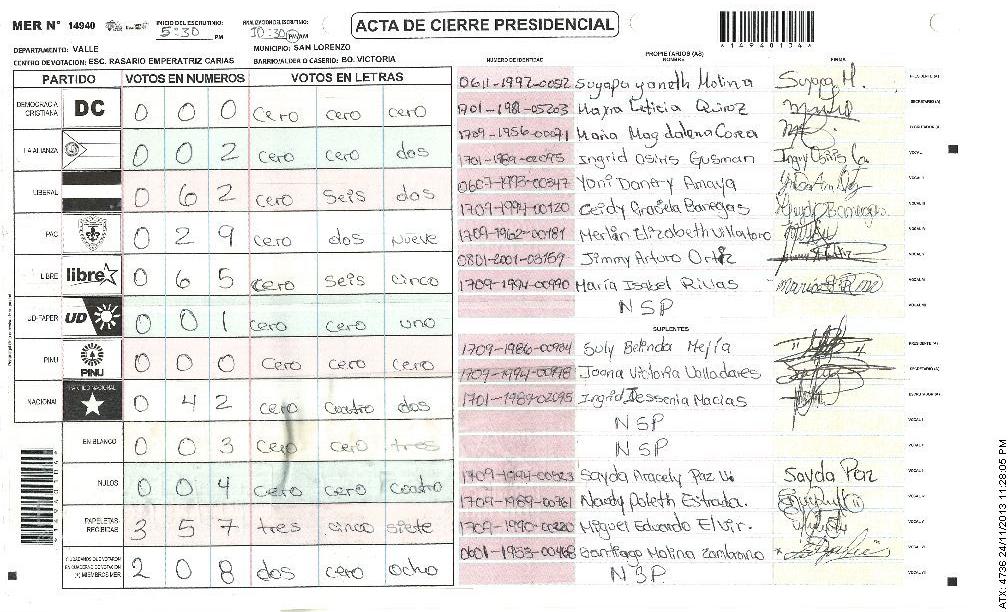 MER N° 14940
INICIO DEL ESCRUTINIO: 5:30 PM
FINALIZACION DEL ESCRUTINIO: 10:30 PM
ACTA DE CIERRE PRESIDENCIAL
*14940134*
DEPARTAMENTO: VALLE
MUNICIPIO: SAN LORENZO
CENTRO DEVOTACION: ESC. RASARIO EMPERATRIZ CARIAS
BARRIO/ALDEA O CASERIO: BO. VICTORIA
PARTIDO VOTOS EN NUMEROS VOTOS EN LETRAS
DEMOCRACIA CRISTIANA DC 0 0 0 cero cero cero
LA ALIANZA 0 0 2 cero cero dos
LIBERAL 0 6 2 cero seis dos
PAC 0 2 9 cero dos nueve
LIBRE libre 0 6 5 cero seis cinco
UD-FAPER UD 0 0 1 cero cero uno
PINU PINU 0 0 0 cero cero cero
NACIONAL PARTIDO NACIONAL 0 4 2 cero cuatro dos
EN BLANCO 0 0 3 cero cero tres
NULOS 0 0 4 cero cero cuatro
PAPELETAS RECIBIDAS 3 5 7 tres cinco siete
CIUDADANOS QUE VOTARON EN CUADERNO DE VOTACION (+) MIEMBROS MER 2 0 8 dos cero ocho
PROPIETARIOS (AS)
NUMERO DE IDENTIDAD NOMBRE FIRMA
0611-1992-00512 Suyapa yaneth Molina Suyapa M. PRESIDENTE (A)
1701-1981-05203 Mayra Leticia Quiroz SECRETARIO (A)
1709-1956-00071 Maria Magdalena Corea ESCRUTADOR (A)
1701-1989-02095 Ingrid Osiris Gusman VOCAL I
0607-1993-00347 Yoni Danery Amaya VOCAL II
1709-1994-00120 Ceidy Graciela Banegas VOCAL III
1709-1962-00181 Merlin Elizabeth Villatoro VOCAL IV
0801-2001-03159 Jimmy Arturo Ortiz VOCAL V
1709-1994-00990 María Isabel Rivas VOCAL VI
NSP VOCAL VII
SUPLENTES
1709-1986-00984 Suly Belinda Mejía PRESIDENTE (A)
1709-1994-00998 Joana Victoria Valladares SECRETARIO (A)
1701-1989-02095 Ingrid Jessenia Macias ESCRUTADOR (A)
NSP VOCAL I
NSP VOCAL II
1709-1994-00523 Sayda Aracely Paz Sayda Paz
1709-1989-00761 Nardy Poleth Estrada.
1709-1990-00220 Miguel Eduardo Elvir.
0601-1953-00468 Santiago Molina Zambrano
NSP
ATX: 4736 24/11/2013 11:28:05 PM